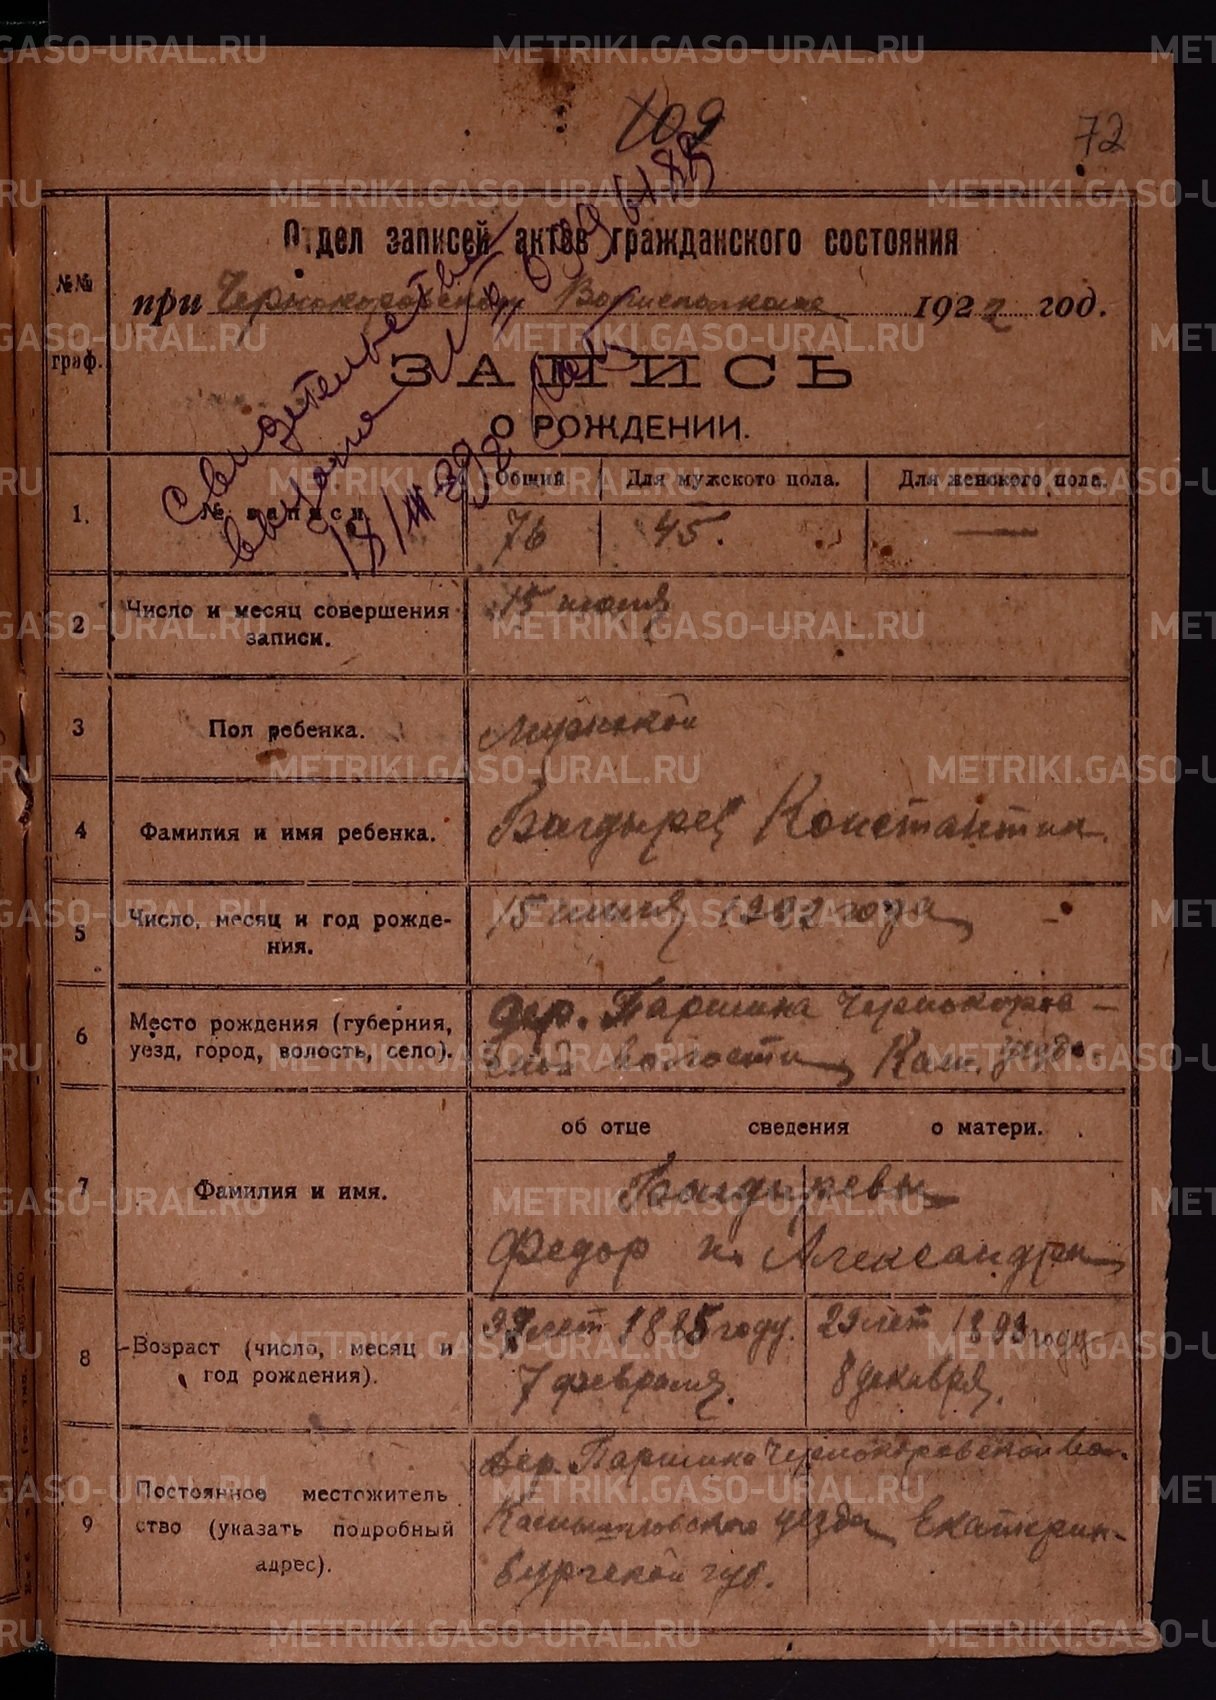 109
72
Отдел записей актов гражданского состояния
при Чернокоровском Волисполкоме 1922 год.
№№ граф.
ЗАПИСЬ
О РОЖДЕНИИ.
Свидетельство
выдано
18/III-39г
1. № записи Общий Для мужского пола. Для женского пола.
76 45. —
2 Число и месяц совершения
записи.
15 июля
3 Пол ребенка. Мужской
4 Фамилия и имя ребенка. Багдырев Константин.
5 Число, месяц и год рожде-
ния.
1922 года
6 Место рождения (губерния,
уезд, город, волость, село).
дер. Паршина Чернокоров-
ской волости, Кам. уезда.
об отце сведения о матери.
7 Фамилия и имя.
Багдыревы
Федор и Александра
8 Возраст (число, месяц и
год рождения).
37 лет 1885 году. 29 лет 1893 году
7 февраля. 8 декабря.
9 Постоянное местожитель
ство (указать подробный
адрес).
дер. Паршина Чернокоровской вол.
Камышловского уезда Екатерин-
бургской губ.
METRIKI.GASO-URAL.RU